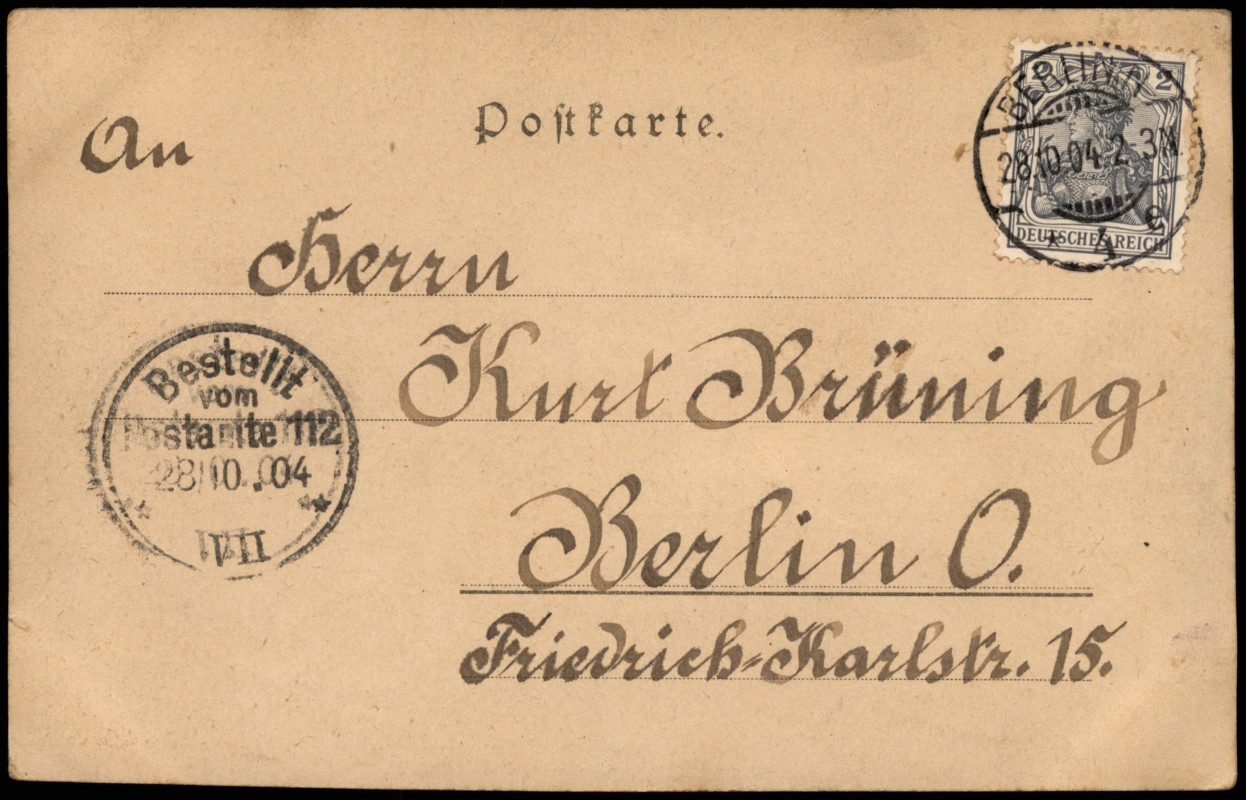 Postkarte.
An
Herrn
Kurt Brüning
Berlin O.
Friedrich-Karlstr. 15.
2 2
DEUTSCHES REICH
BERLIN
28.10.04. 2-3N.
Bestellt
vom
Postamte 112
28/10. 04